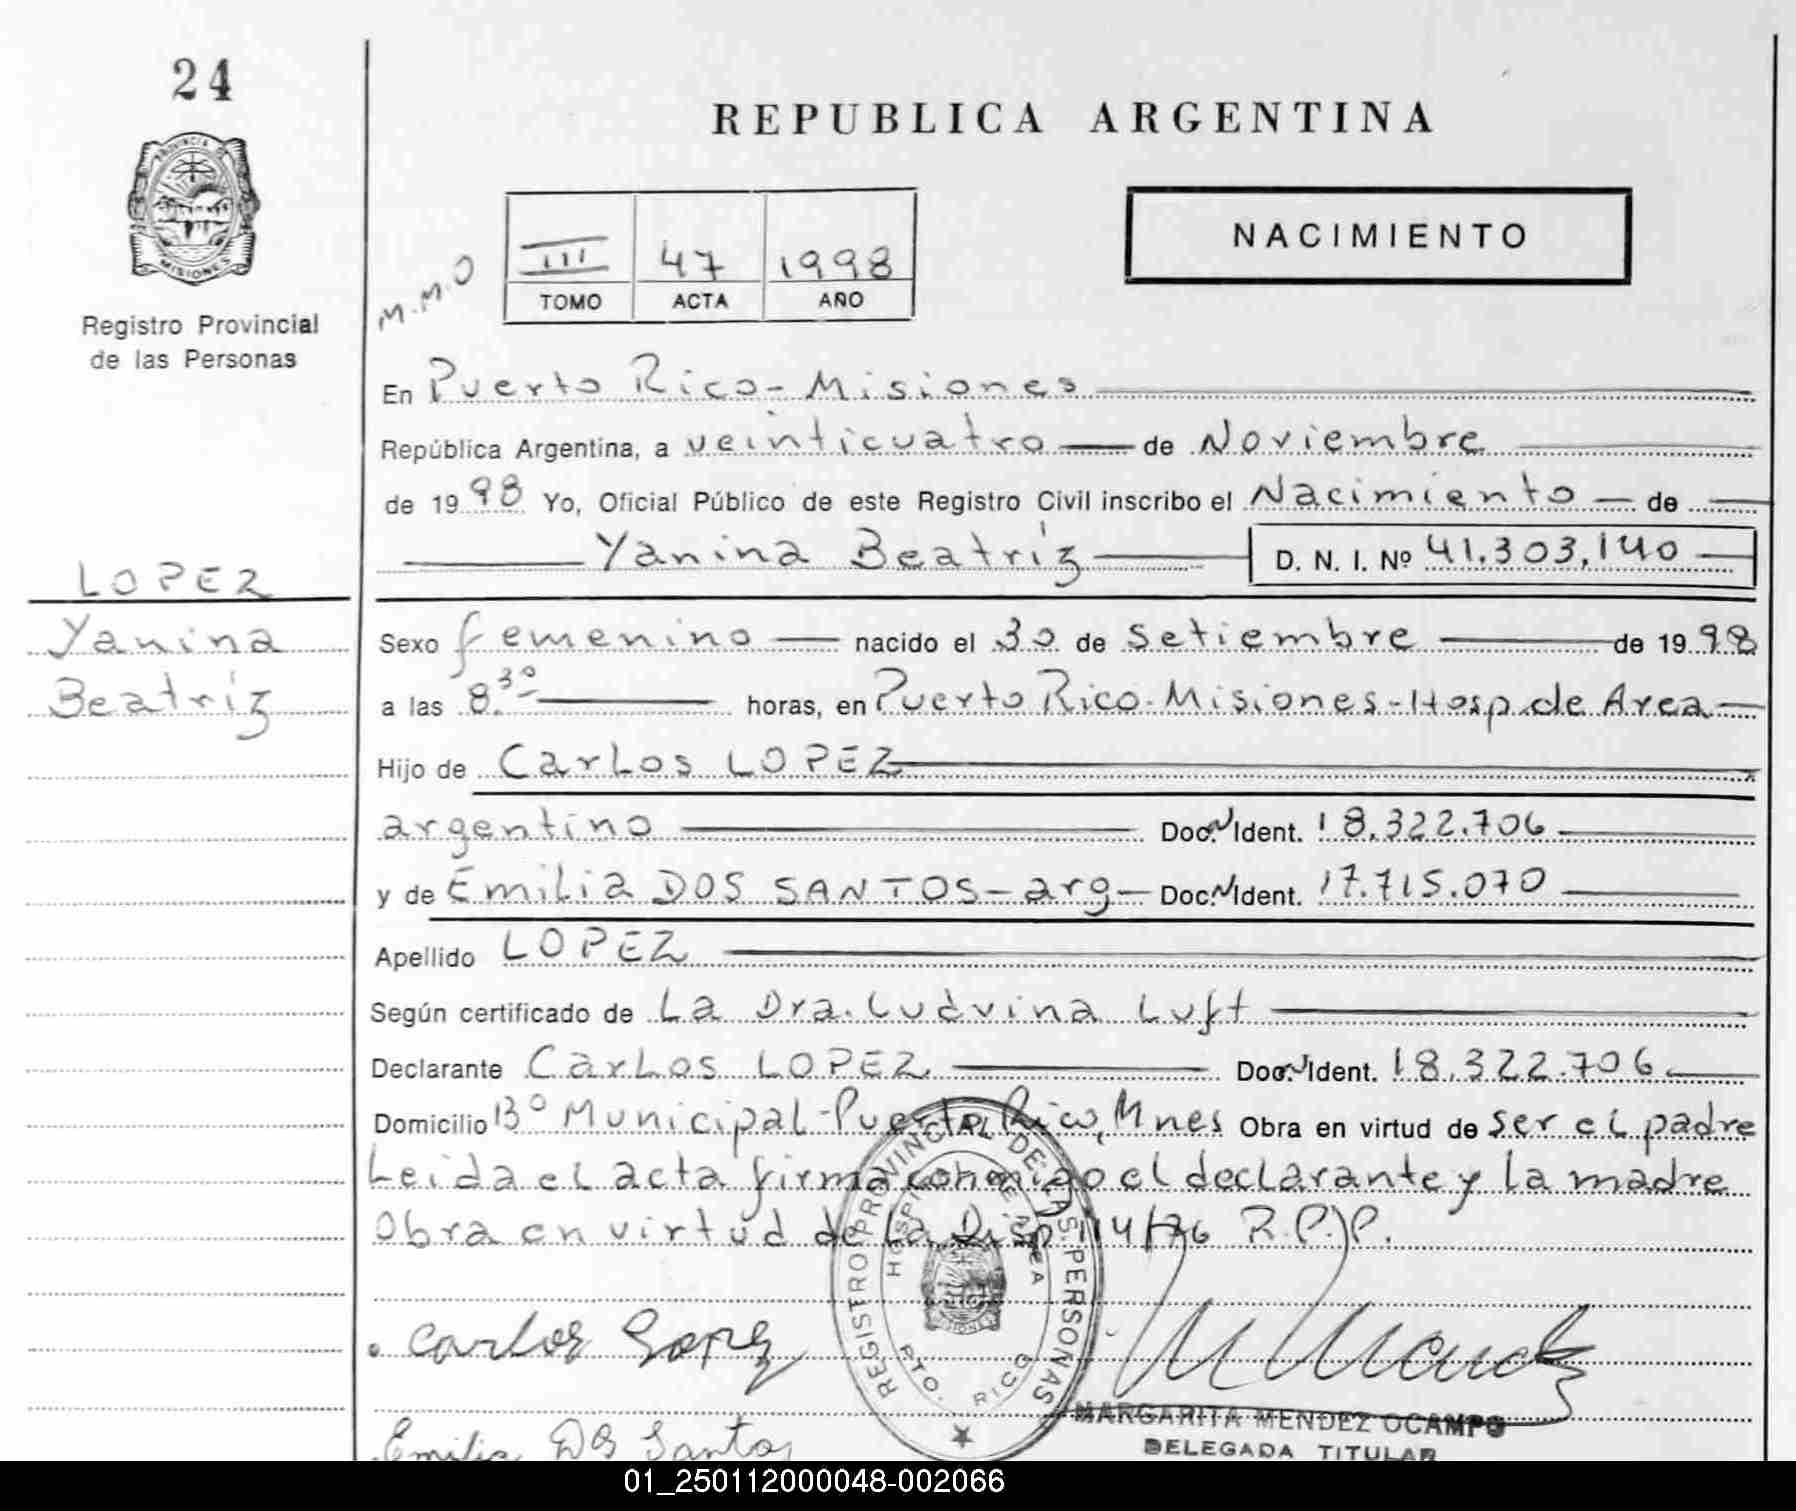 24
REPUBLICA ARGENTINA
PROVINCIA DE
MISIONES
Registro Provincial
de las Personas
NACIMIENTO
M.M.O
III 47 1998
TOMO ACTA AÑO
En Puerto Rico - Misiones
República Argentina, a veinticuatro de Noviembre
de 1998 Yo, Oficial Público de este Registro Civil inscribo el Nacimiento de
Yanina Beatríz D. N. I. Nº 41.303.140
LOPEZ
Yanina
Beatríz
Sexo femenino nacido el 30 de Setiembre de 1998
a las 8.30 horas, en Puerto Rico - Misiones - Hosp. de Area
Hijo de Carlos LOPEZ
argentino Doc. N Ident. 18.322.706
y de Emilia DOS SANTOS - arg - Doc. N Ident. 17.715.070
Apellido LOPEZ
Según certificado de La Dra. Ludvina Luft
Declarante Carlos LOPEZ Doc. N Ident. 18.322.706
Domicilio Bº Municipal - Puerto Rico, Mnes Obra en virtud de ser el padre
Leida el acta firma conmigo el declarante y la madre
Obra en virtud de la Disp 114/76 R.P.P.
REGISTRO PROVINCIAL DE LAS PERSONAS
HOSPITAL DE AREA
PTO. RICO
MISIONES
Carlos Lopez
MARGARITA MENDEZ OCAMPO
DELEGADA TITULAR
Emilia Dos Santos
01_250112000048-002066